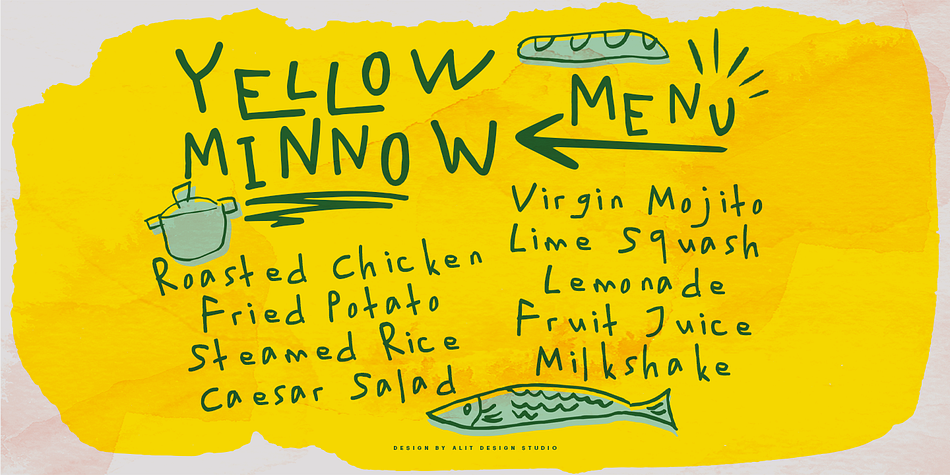 YELLOW
MINNOW
MENU
Roasted Chicken
Fried Potato
Steamed Rice
Caesar Salad
Virgin Mojito
Lime Squash
Lemonade
Fruit Juice
Milkshake
DESIGN BY ALIT DESIGN STUDIO